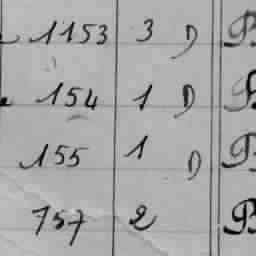 1153 3 D P
154 1 D
155 1 D P
157 2 P